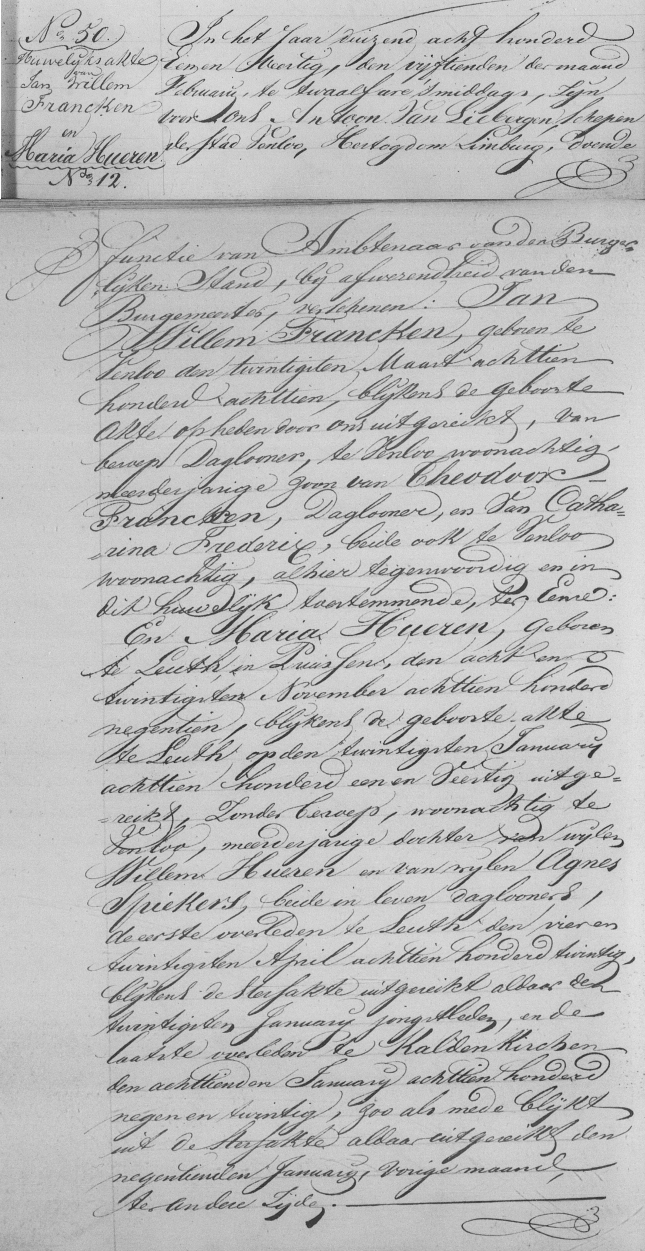 No 50.
Huwelijksakte
van
Jan Willem
Francken
en
Maria Hueren.
No 12.
In het Jaar duizend acht honderd
Eenen Veertig, den vijftienden der maand
February, te twaalf ure 's middags, Zijn
voor Ons Antoon Van Liebergen, schepen
der stad Venloo, Hertogdom Limburg, doende
functie van Ambtenaar van den Burger
lijken Stand, bij afwezendheid van den
Burgemeester, verschenen: Jan
Willem Francken, geboren te
Venloo den twintigsten Maart achttien
honderd achttien, blijkens de geboorte
Akte op heden door ons uitgereikt, van
beroep Daglooner, te Venloo woonachtig,
meerderjarige zoon van Theodoor
Francken, Daglooner, en Van Catha=
rina Frederix, beide ook te Venloo
woonachtig, alhier tegenwoordig en in
dit huwelijk toestemmende, ter Eenre:
En Maria Hueren, geboren
te Leuth, in Pruissen, den acht en
twintigsten November achttien honderd
negentien, blijkens de geboorte akte
te Leuth op den twintigsten January
achttien honderd een en Veertig uitge=
=reikt, Zonder beroep, woonachtig te
Venloo, meerderjarige dochter van wijlen
Willem Hueren en van wijlen Agnes
Spickers, beide in leven daglooners,
de eerste overleden te Leuth den vier en
twintigsten April achttien honderd twintig,
blijkens de sterfakte uitgereikt aldaar den
twintigsten January jongstleden, en de
laatste overleden te Kaldenkirchen
den achttienden January achttien honderd
negen en twintig, zoo als mede blijkt
uit de sterfakte aldaar uitgereikt den
negentienden January, Vorige maand,
ter andere Zijde.